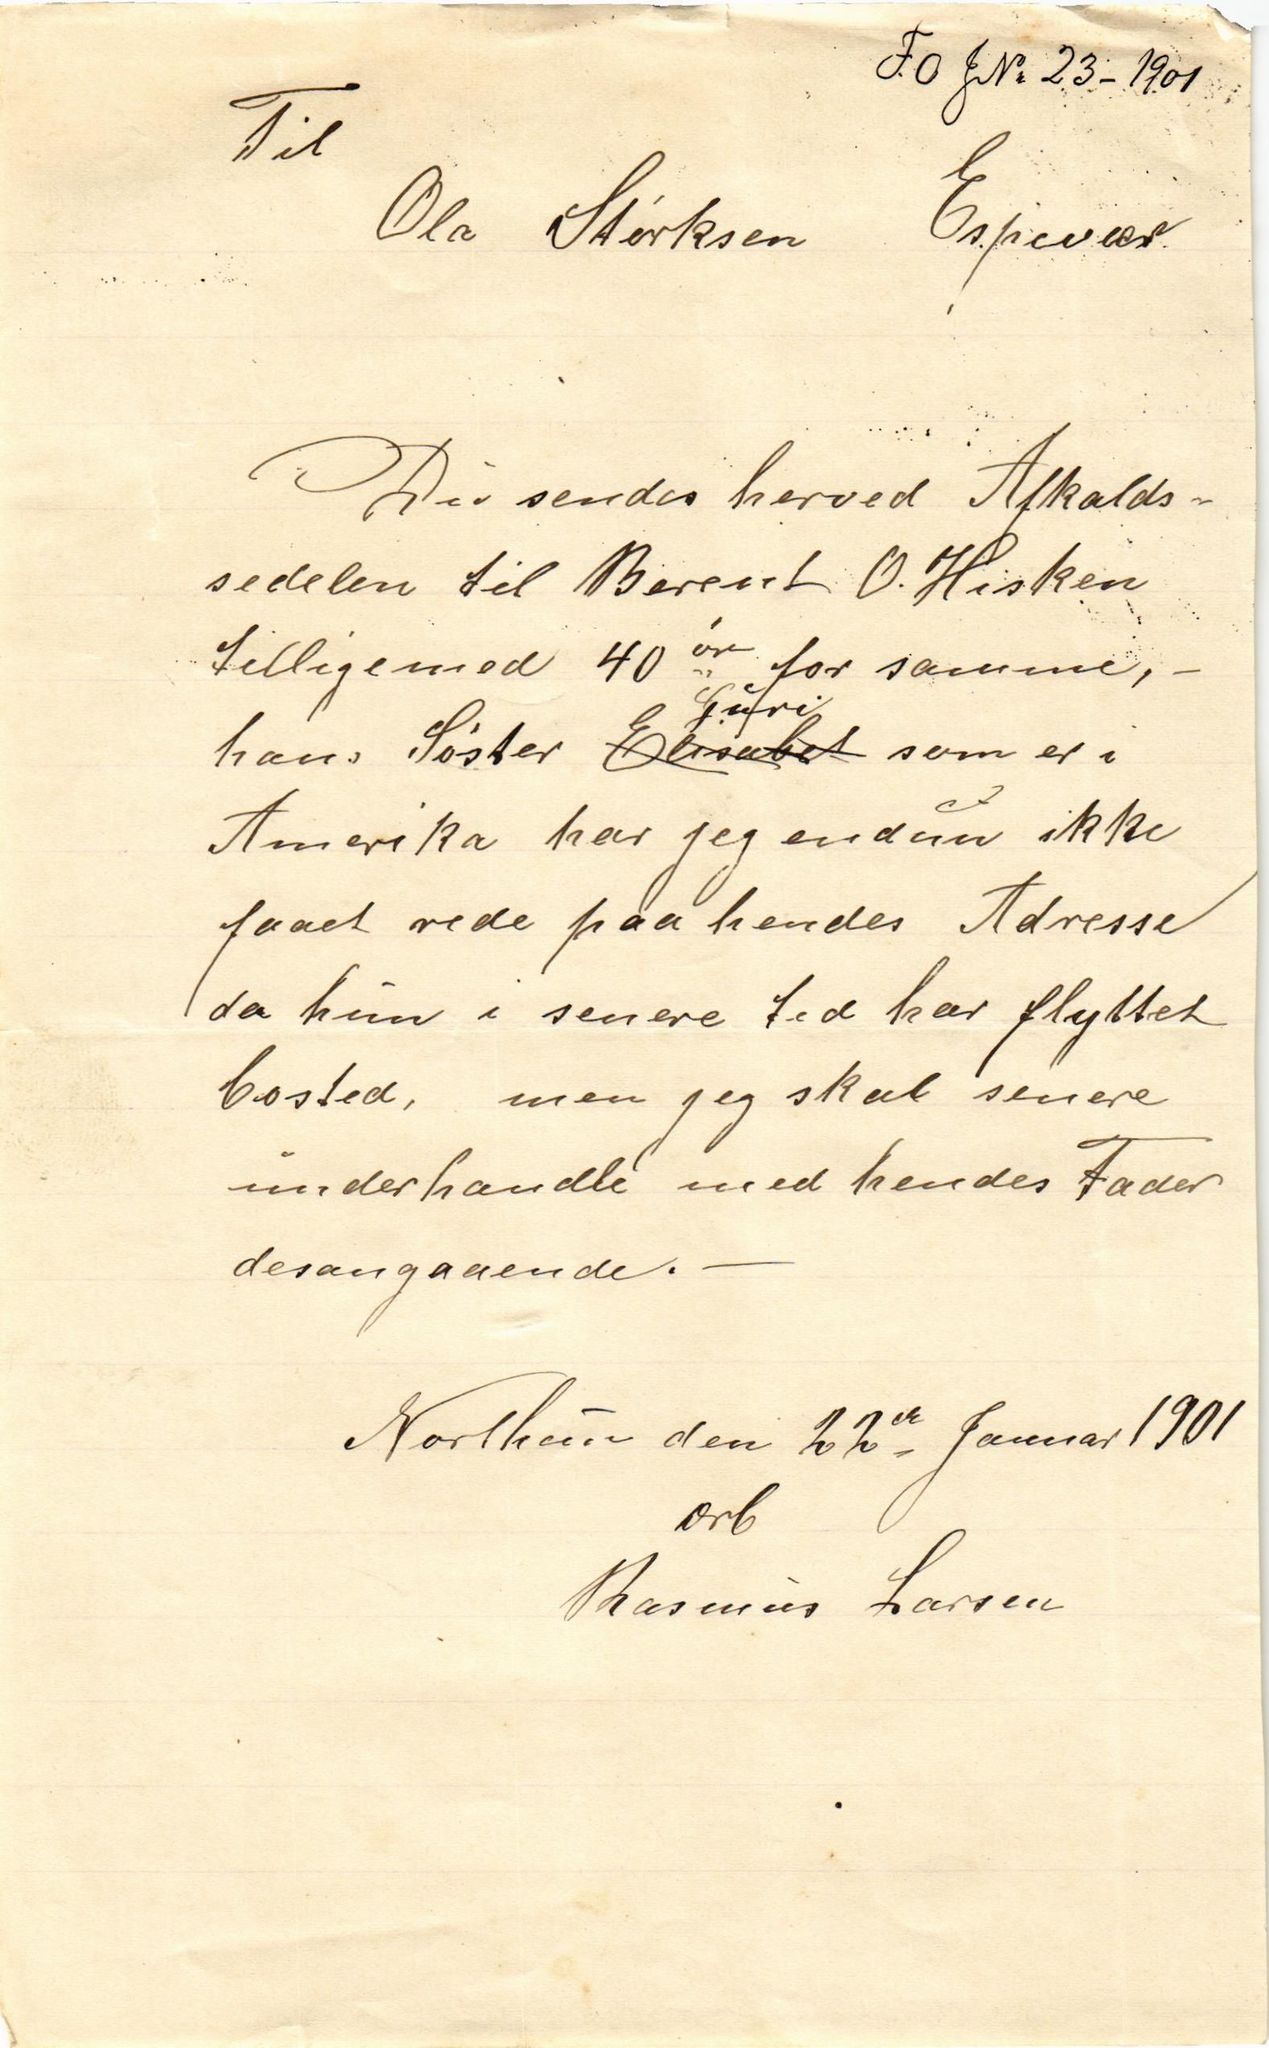 F.O JNo 23-1901
Til
Ola Størksen Espevær
Div sendes herved Afkalds-
sedelen til Berent O. Hisken
tilligemed 40 ør for samme, -
hans Søster Guri Elisabet som er i
Amerika har jeg endnu ikke
faaet rede paa hendes Adresse
da hun i senere tid har flyttet
bosted, men jeg skal senere
underhandle med hendes Fader
desangaaende. -
Northun den 22de Januar 1901
ærb
Rasmus Larsen